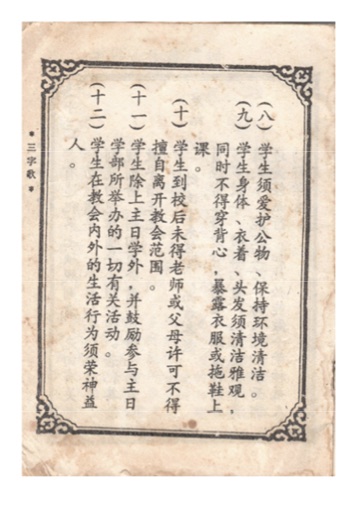 (八) 学生须爱护公物、保持环境清洁。
(九) 学生身体、衣着、头发须清洁雅观,
同时不得穿背心,暴露衣服或拖鞋上
课。
(十) 学生到校后未得老师或父母许可不得
擅自离开教会范围。
(十一) 学生除上主日学外,并鼓励参与主日
学部所举办的一切有关活动。
(十二) 学生在教会内外的生活行为须荣神益
人。
* 三字歌 *